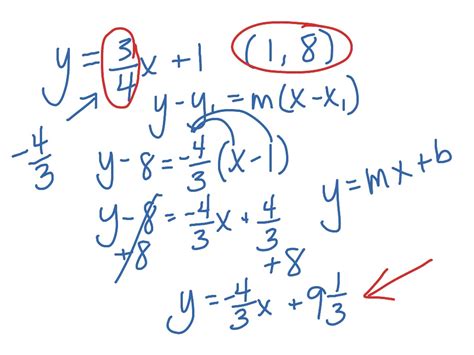 y = 3/4 x + 1 (1, 8)
y - y₁ = m(x - x₁)
-4/3
y - 8 = -4/3 (x - 1)
y = mx + b
y - 8 = -4/3 x + 4/3
+8 +8
y = -4/3 x + 9 1/3